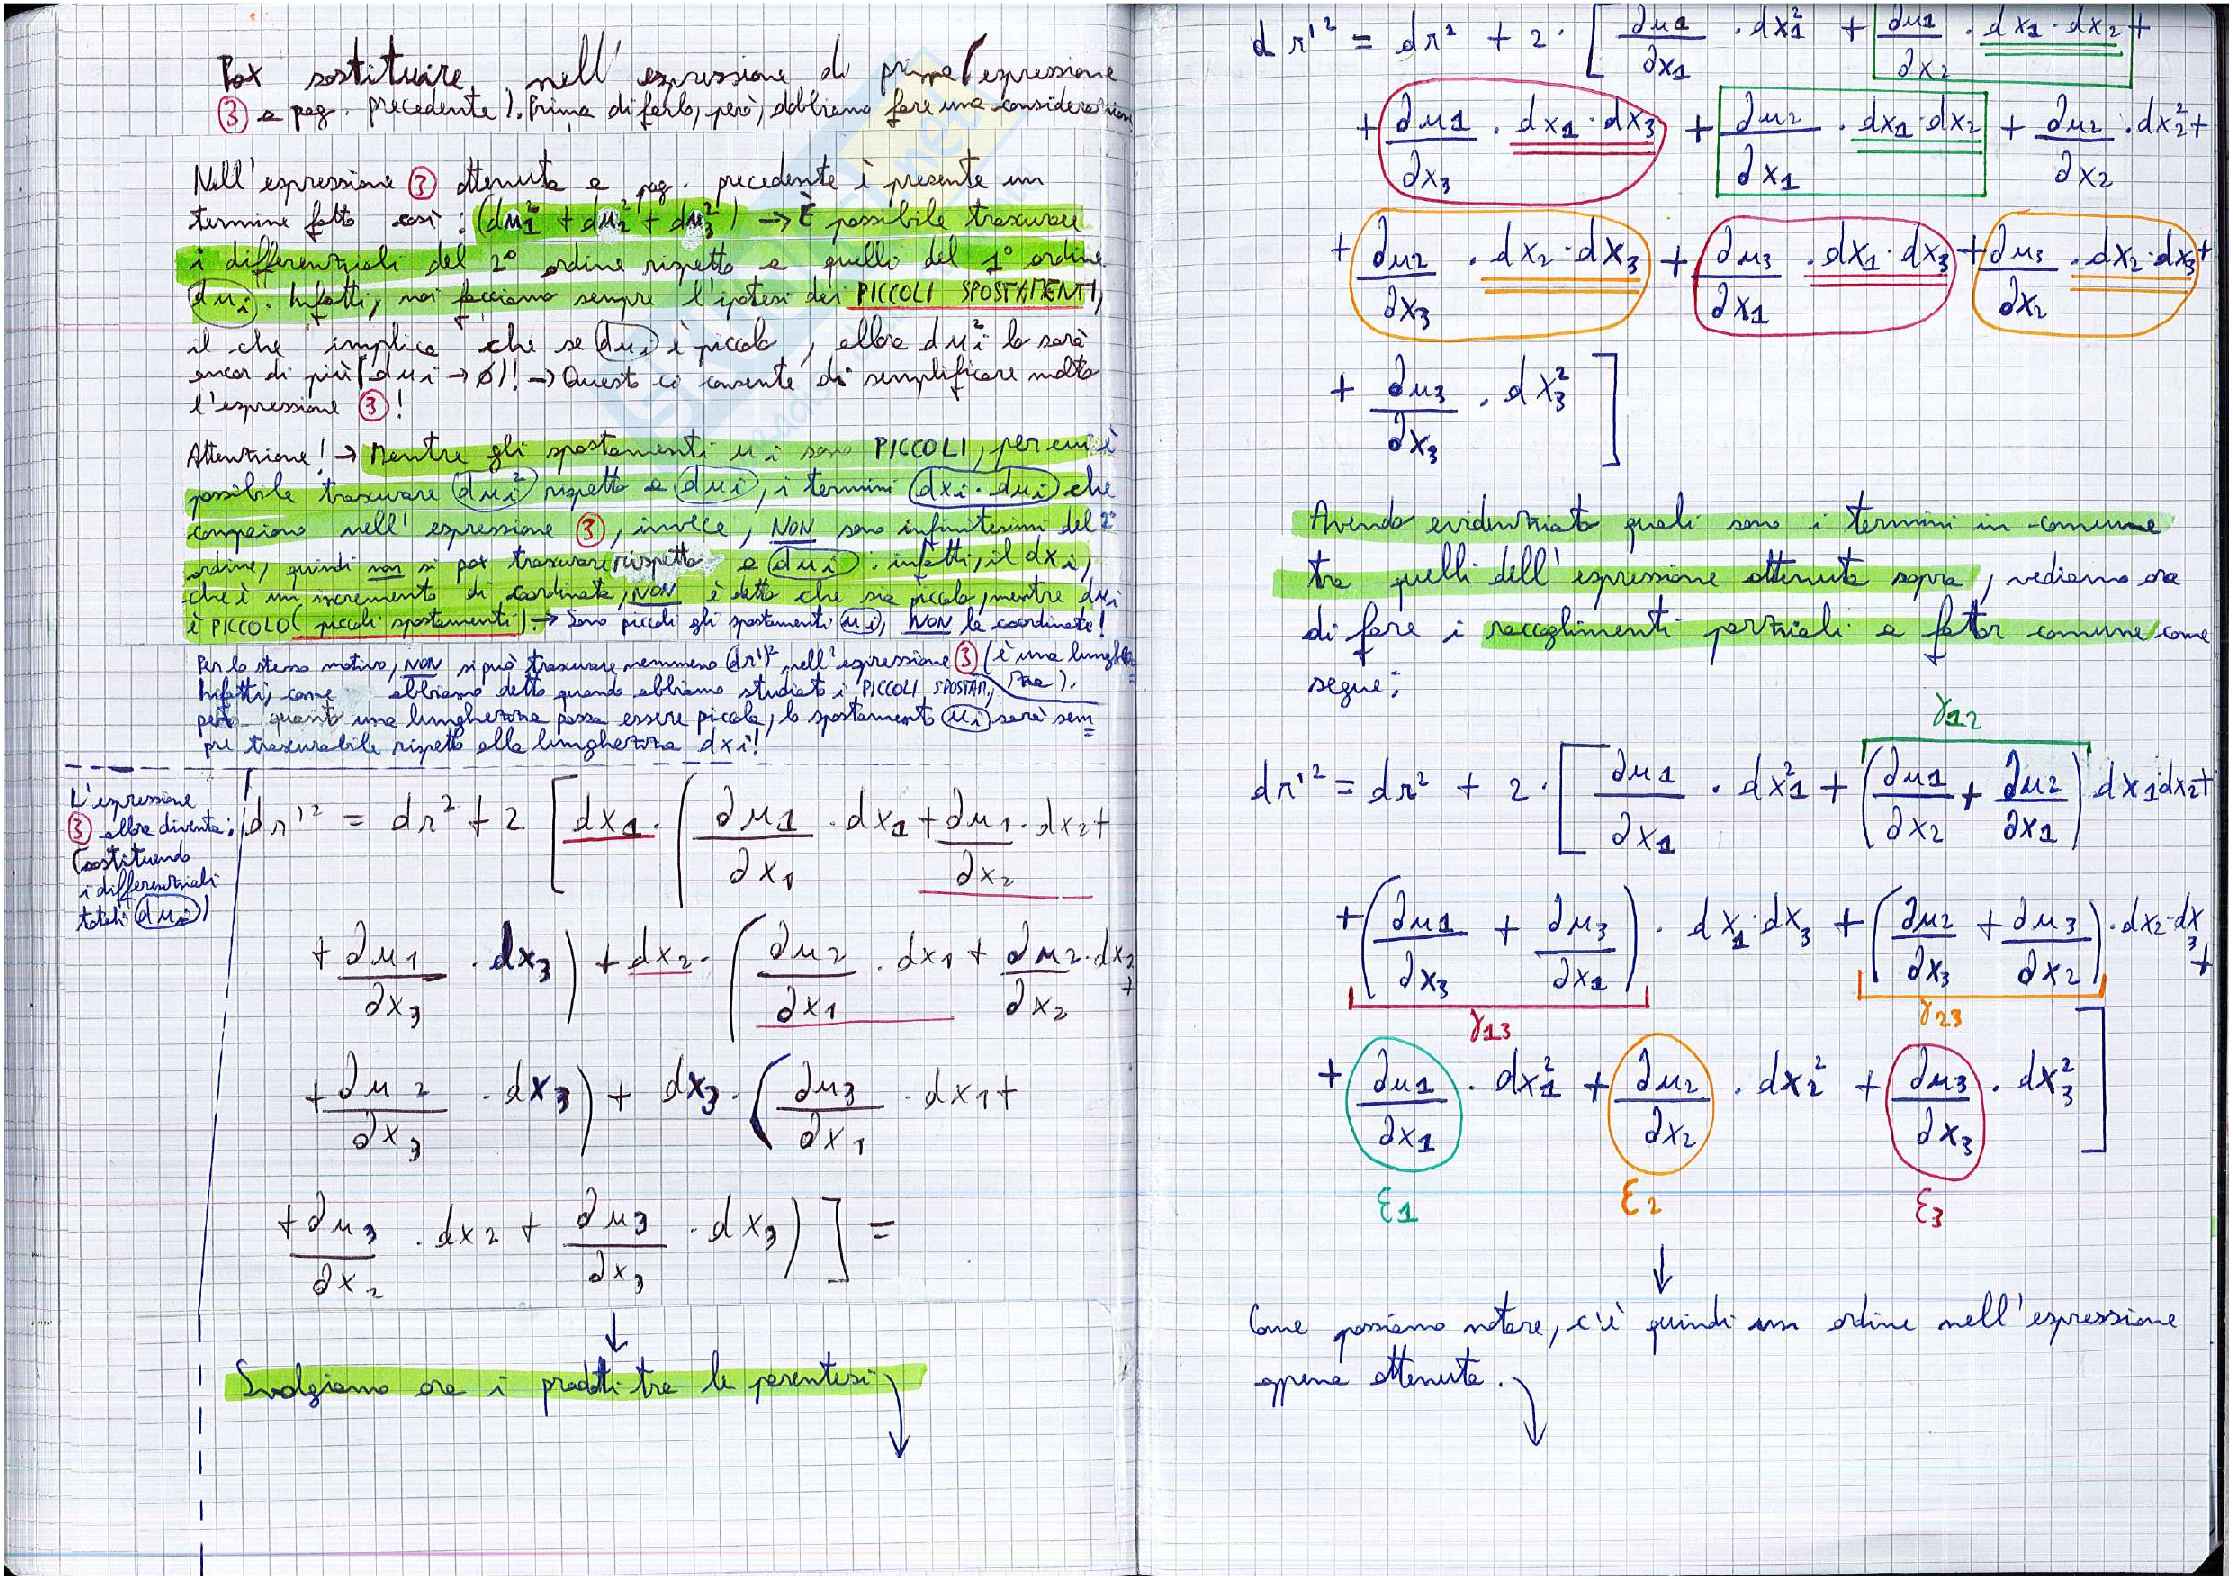 Per sostituire nell'espressione di prima (espressione
③ a pag. precedente). Prima di farlo, però, dobbiamo fare una considerazione
Nell'espressione ③ ottenuta a pag. precedente è presente un
termine fatto così: (du₁² + du₂² + du₃²) → È possibile trascurare
i differenziali del 2° ordine rispetto a quelli del 1° ordine
duᵢ. Infatti, noi facciamo sempre l'ipotesi dei PICCOLI SPOSTAMENTI,
il che implica che se duᵢ è piccolo, allora duᵢ² lo sarà
ancor di più (duᵢ → 0)! → Questo ci consente di semplificare molto
l'espressione ③!
Attenzione! → Mentre gli spostamenti uᵢ sono PICCOLI, per cui è
possibile trascurare duᵢ² rispetto a duᵢ, i termini dxᵢ · duᵢ che
compaiono nell'espressione ③, invece, NON sono infinitesimi del 2°
ordine, quindi non si può trascurare rispetto a duᵢ: infatti, il dxᵢ,
che è un incremento di coordinata, NON è detto che sia piccolo, mentre duᵢ
è PICCOLO (piccoli spostamenti) → Sono piccoli gli spostamenti uᵢ, NON le coordinate!
Per lo stesso motivo, NON si può trascurare nemmeno (dr')² nell'espressione ③ (è una lunghezza).
Infatti, come abbiamo detto quando abbiamo studiato i PICCOLI SPOSTAM.,
per quanto una lunghezza possa essere piccola, lo spostamento uᵢ sarà sem
pre trascurabile rispetto alla lunghezza dxᵢ!
L'espressione
③ allora diventa:
(sostituendo
i differenziali
totali duᵢ)
dr'² = dr² + 2 [dx₁ · (∂u₁/∂x₁ · dx₁ + ∂u₁/∂x₂ · dx₂ +
+ ∂u₁/∂x₃ · dx₃) + dx₂ · (∂u₂/∂x₁ · dx₁ + ∂u₂/∂x₂ · dx₂ +
+ ∂u₂/∂x₃ · dx₃) + dx₃ · (∂u₃/∂x₁ · dx₁ +
+ ∂u₃/∂x₂ · dx₂ + ∂u₃/∂x₃ · dx₃)] =
Svolgiamo ora i prodotti tra le parentesi
dr'² = dr² + 2 · [∂u₁/∂x₁ · dx₁² + ∂u₁/∂x₂ · dx₁ · dx₂ +
+ ∂u₁/∂x₃ · dx₁ · dx₃ + ∂u₂/∂x₁ · dx₁ · dx₂ + ∂u₂/∂x₂ · dx₂² +
+ ∂u₂/∂x₃ · dx₂ · dx₃ + ∂u₃/∂x₁ · dx₁ · dx₃ + ∂u₃/∂x₂ · dx₂ · dx₃ +
+ ∂u₃/∂x₃ · dx₃²]
Avendo evidenziato quali sono i termini in comune
tra quelli dell'espressione ottenuta sopra, vediamo ora
di fare i raccoglimenti parziali a fattor comune come
segue:
γ₁₂
dr'² = dr² + 2 · [∂u₁/∂x₁ · dx₁² + (∂u₁/∂x₂ + ∂u₂/∂x₁) dx₁ dx₂ +
+ (∂u₁/∂x₃ + ∂u₃/∂x₁) · dx₁ · dx₃ + (∂u₂/∂x₃ + ∂u₃/∂x₂) · dx₂ · dx₃ +
γ₁₃ γ₂₃
+ ∂u₁/∂x₁ · dx₁² + ∂u₂/∂x₂ · dx₂² + ∂u₃/∂x₃ · dx₃²]
ε₁ ε₂ ε₃
Come possiamo notare, c'è quindi un ordine nell'espressione
appena ottenuta.